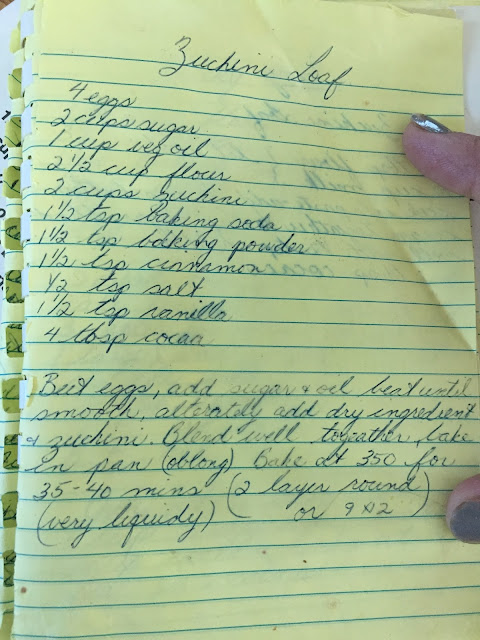 Zuchini Loaf
4 eggs
2 cups sugar
1 cup veg oil
2 1/2 cup flour
2 cups zuchini
1 1/2 tsp baking soda
1 1/2 tsp bakking powder
1 1/2 tsp cinnamon
1/2 tsp salt
1 1/2 tsp vanilla
4 tbsp cocoa
Beet eggs, add sugar & oil beat until
smooth, alterately add dry ingredient
& zuchini. Blend well togeather, bake
in pan (oblong) Bake at 350 for
35-40 mins (2 layer round
(very liquidy) or 9x12)